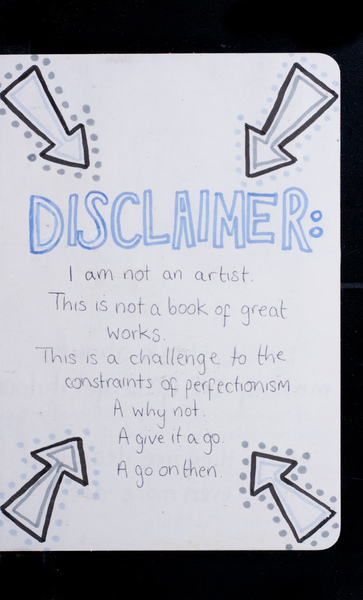 DISCLAIMER:
I am not an artist.
This is not a book of great
works.
This is a challenge to the
constraints of perfectionism
A why not.
A give it a go.
A go on then.